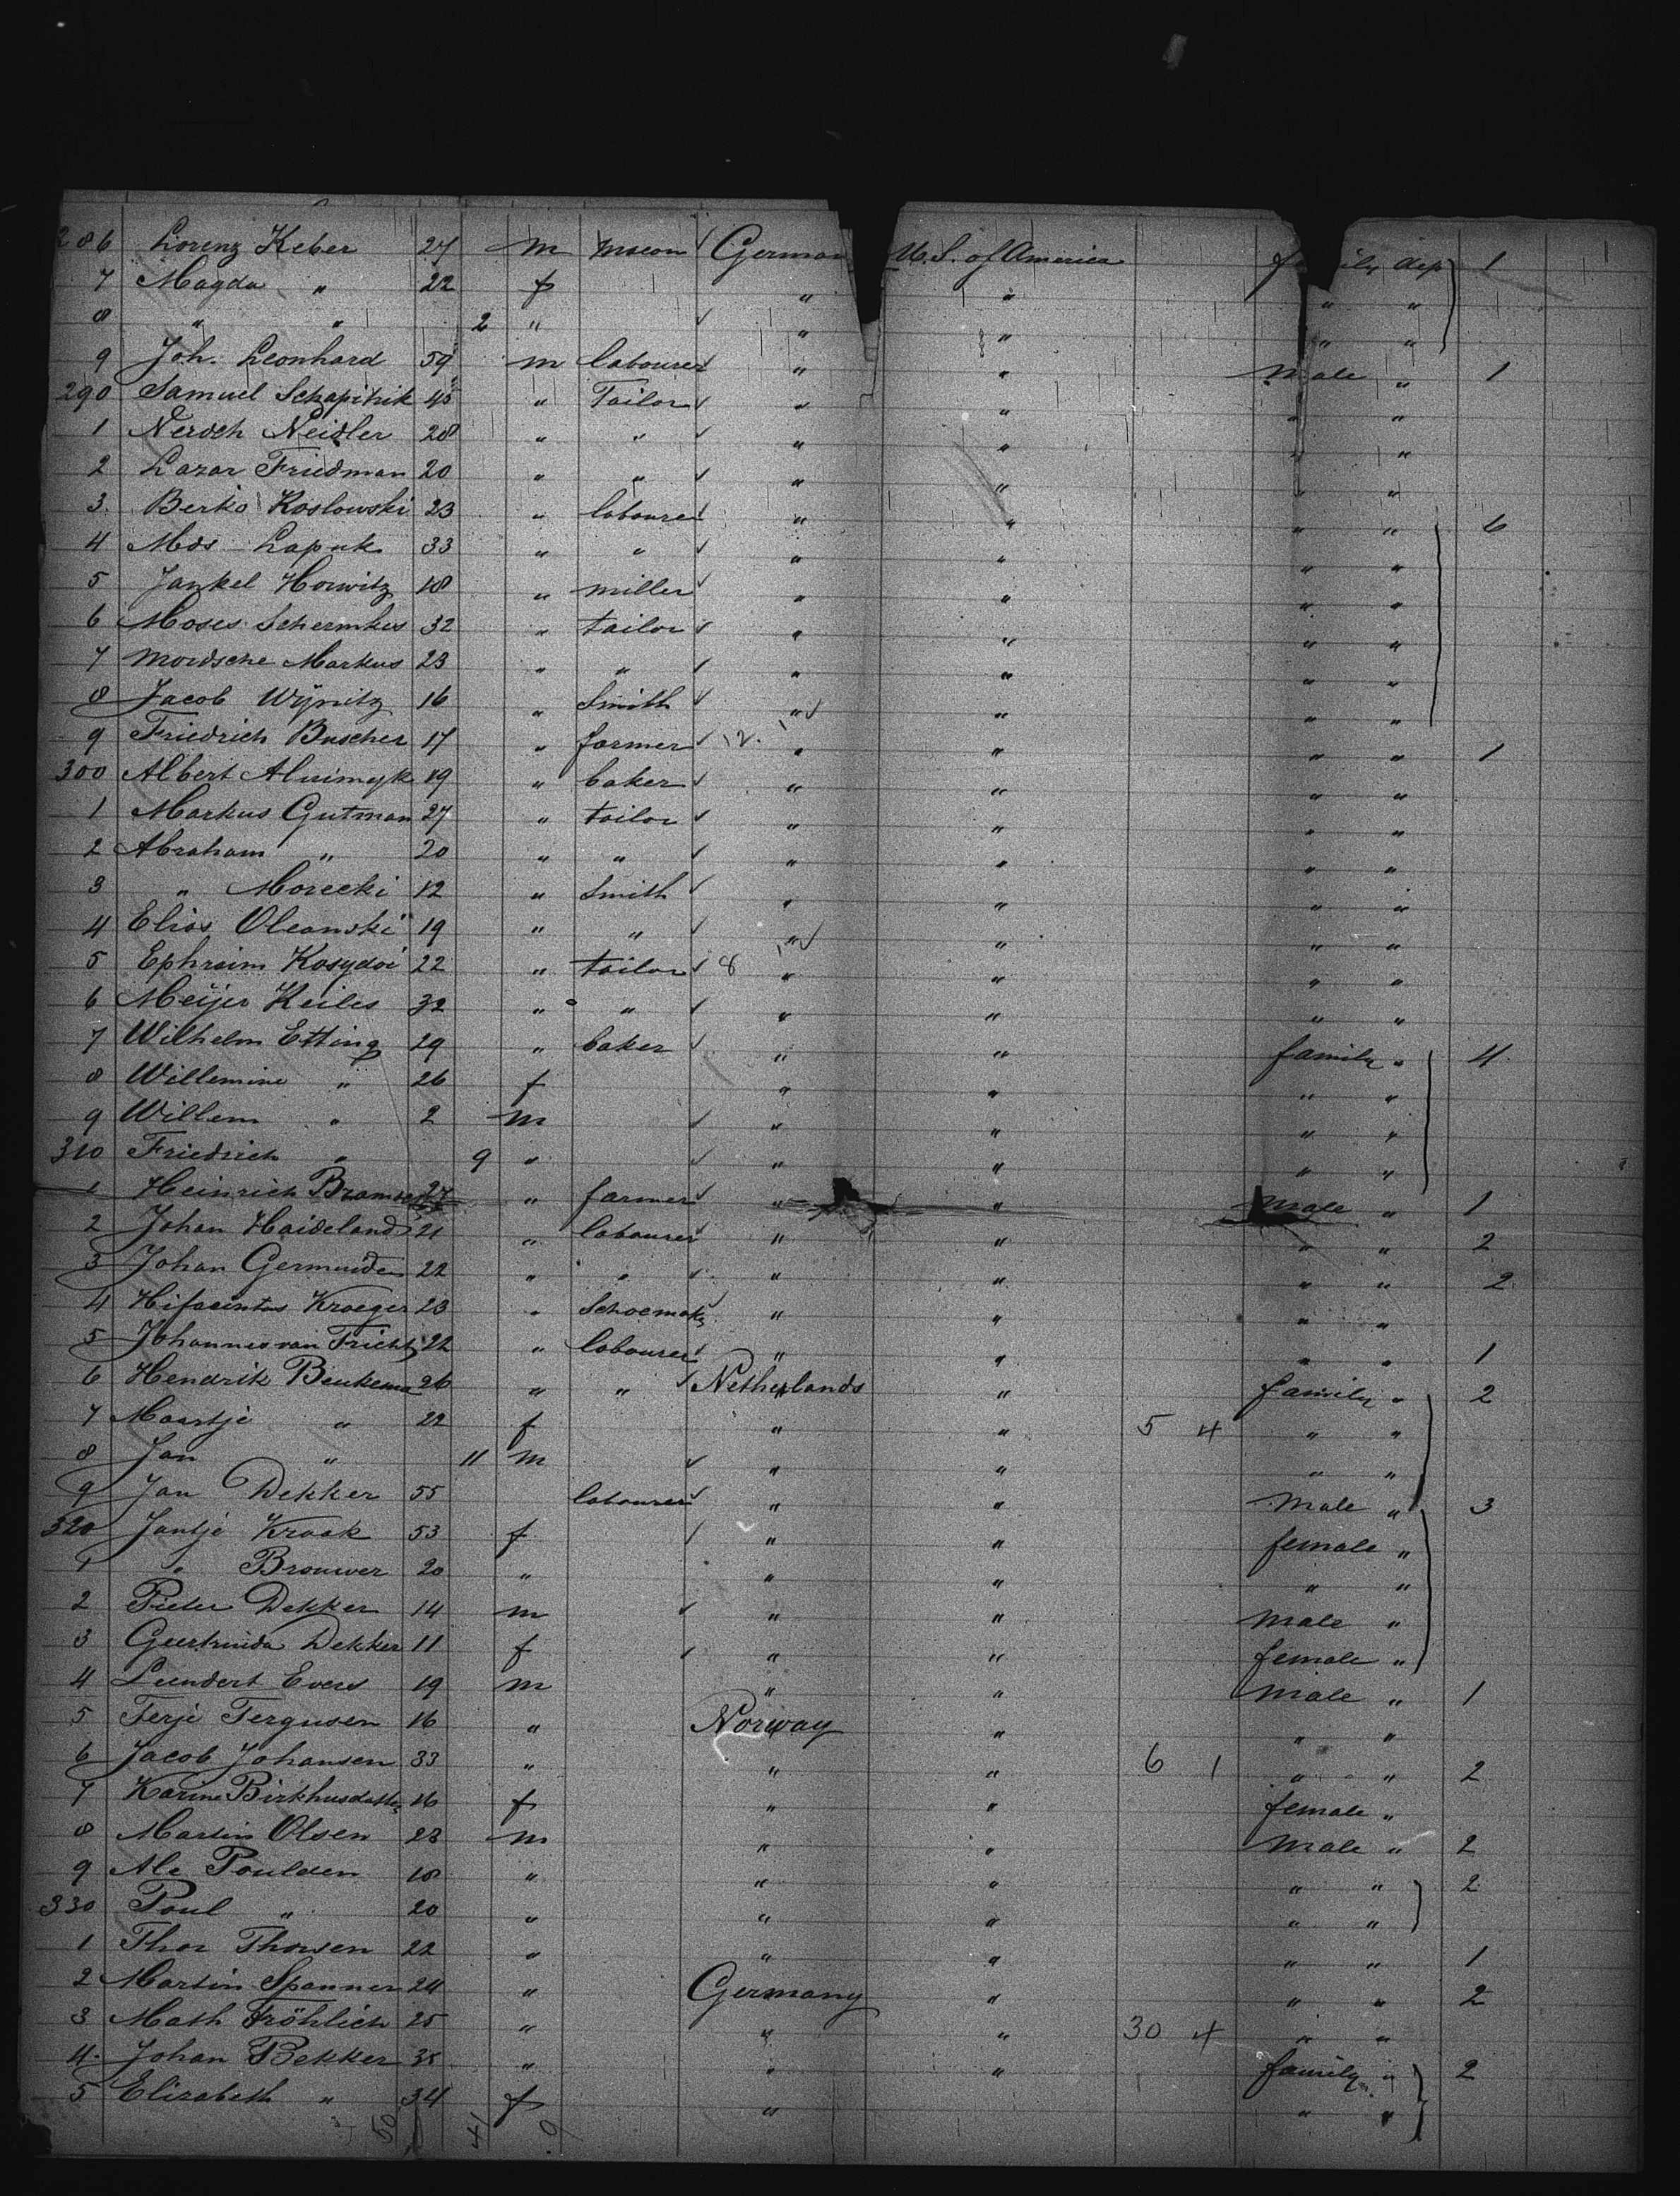 286 Lorenz Keber 27 m mason German U.S. of America family dep 1
7 Magda " 22 f " " " "
8 " " 2 " " " " "
9 Joh. Leonhard 59 m labourer " " Male " 1
290 Samuel Schapitrik 45 " Tailor " " " "
1 Nersch Neidler 28 " " " " " "
2 Lazar Friedman 20 " " " " " "
3 Berko Koslowski 23 " labourer " " " " 6
4 Mos Lapuk 33 " " " " " "
5 Jankel Horwitz 18 " miller " " " "
6 Moses Schermkes 32 " tailor " " " "
7 Mordsche Markus 23 " " " " " "
8 Jacob Wijnitz 16 " Smith " " " "
9 Friedrich Buscher 17 " farmer 12. " " " " 1
300 Albert 19 " baker " " " "
1 Markus Gutman 27 " tailor " " " "
2 Abraham " 20 " " " " " "
3 " Morecki 12 " Smith " " " "
4 Elias Oleanski 19 " " " " " "
5 Ephraim Kosydoi 22 " tailor 8 " " " "
6 Meijer Keiles 32 " " " " " "
7 Wilhelm Etting 29 " baker " " family " 4
8 Willemine " 26 f " " " "
9 Willem " 2 m " " " "
310 Friedrich " 9 " " " " "
1 Heinrich 27 " farmer " " Male " 1
2 Johan Haideland 21 " labourer " " " " 2
3 Johan Germuiden 22 " " " " " " 2
4 Hifacintus Kroeger 23 " Schoemakr " " " "
5 Johannes van Tricht 22 " labourer " " " " 1
6 Hendrik Beukema 26 " " Netherlands " family " 2
7 Maartje " 22 f " " 5 4 " "
8 Jan " 11 m " " " "
9 Jan Dekker 55 labourer " " Male " 3
320 Jantje Kraak 53 f " " female "
1 " Brouwer 20 " " " " "
2 Pieter Dekker 14 m " " Male "
3 Geertruida Dekker 11 f " " female "
4 Leendert Evers 19 m " " Male " 1
5 Terje Tergusen 16 " Norway " " "
6 Jacob Johansen 33 " " " 6 1 " " 2
7 Karine Birkhusdatter 16 f " " female "
8 Martin Olsen 23 m " " Male " 2
9 Ale Poulden 18 " " " " " 2
330 Poul " 20 " " " " "
1 Thor Thorsen 22 " " " " " 1
2 Martin Spanner 24 " Germany " " " 2
3 Math Fröhlich 25 " " " 30 4 " "
4. Johan Bekker 35 " " " family " 2
5 Elizabeth " 34 f " " "
50 41 9